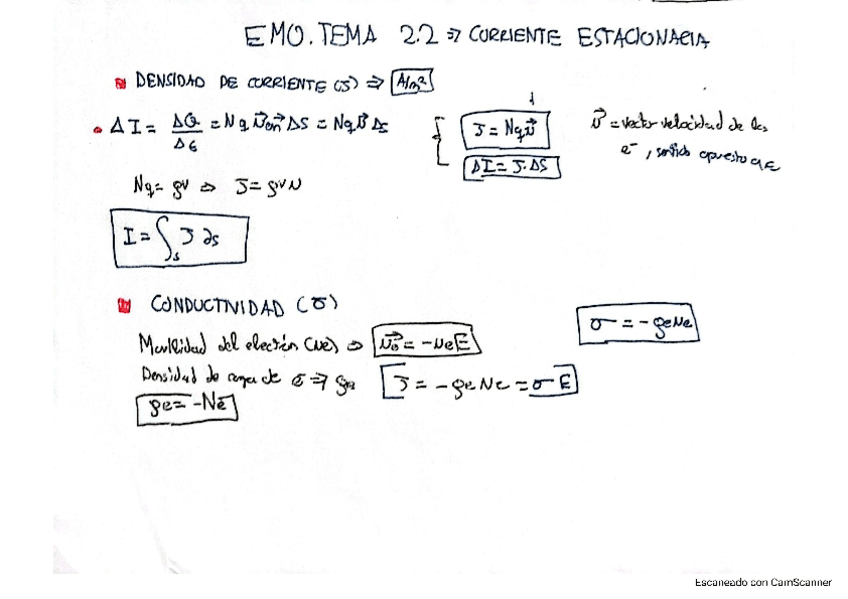 EMO. TEMA 2.2 => CORRIENTE ESTACIONARIA
DENSIDAD DE CORRIENTE (J) => A/m²
• ΔI = ΔQ/Δt = Nq v⃗ n⃗ ΔS = Nq v⃗ ΔS
J = Nq v⃗
ΔI = J·ΔS
v⃗ = vector velocidad de los
e⁻, sentido opuesto a E
Nq = ρv => J = ρv v
I = ∫s J ds
CONDUCTIVIDAD (σ)
Movilidad del electrón (μe) => v⃗ = -μe E
σ = -ρe μe
Densidad de carga de e⁻ => ρe
J = -ρe μe = σ E
ρe = -Ne
Escaneado con CamScanner